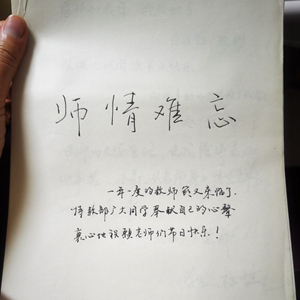 师情难忘
一年一度的教师节又来临了.
特教部广大同学奉献自己的心声
衷心地祝愿老师们节日快乐!